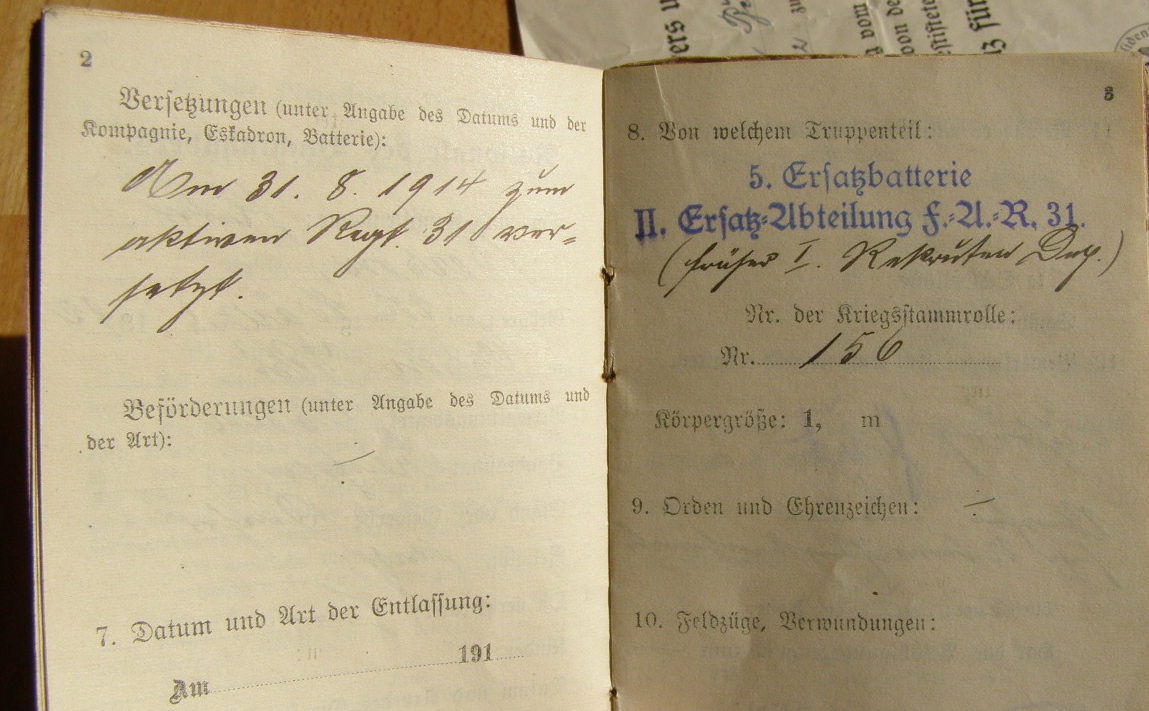 2
Versetzungen (unter Angabe des Datums und der
Kompagnie, Eskadron, Batterie):
Am 31. 8. 1914 zum
aktiven Regt. 31 ver-
setzt.
Beförderungen (unter Angabe des Datums und
der Art):
—
7. Datum und Art der Entlassung:
Am 191
3
8. Von welchem Truppenteil:
5. Ersatzbatterie
II. Ersatz-Abteilung F.-A.-R. 31.
(früher I. Rekruten Dep.)
Nr. der Kriegsstammrolle:
Nr. 156
Körpergröße: 1, m
9. Orden und Ehrenzeichen: —
10. Feldzüge, Verwundungen: